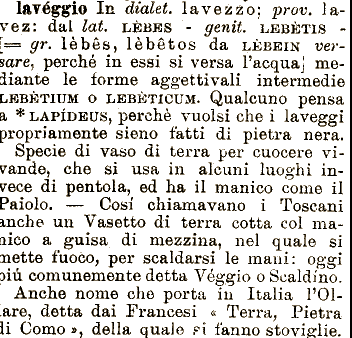 lavéggio In dialet. lavezzo; prov. la-
vez: dal lat. LÈBES - genit. LEBÈTIS -
[= gr. lèbês, lèbêtos da LÈBEIN ver-
sare, perché in essi si versa l'acqua] me-
diante le forme aggettivali intermedie
LEBÈTIUM O LEBÈTICUM. Qualcuno pensa
a * LAPÍDEUS, perchè vuolsi che i laveggi
propriamente sieno fatti di pietra nera.
Specie di vaso di terra per cuocere vi-
vande, che si usa in alcuni luoghi in-
vece di pentola, ed ha il manico come il
Paiolo. — Cosí chiamavano i Toscani
anche un Vasetto di terra cotta col ma-
nico a guisa di mezzina, nel quale si
mette fuoco, per scaldarsi le mani: oggi
piú comunemente detta Véggio o Scaldíno.
Anche nome che porta in Italia l'Ol-
lare, detta dai Francesi « Terra, Pietra
di Como », della quale si fanno stoviglie.